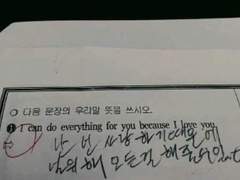 ○ 다음 문장의 우리말 뜻을 쓰시오.
❶ I can do everything for you because I love you.
나 넌 사랑하기때문에
널위해 모든걸 해줄수있어